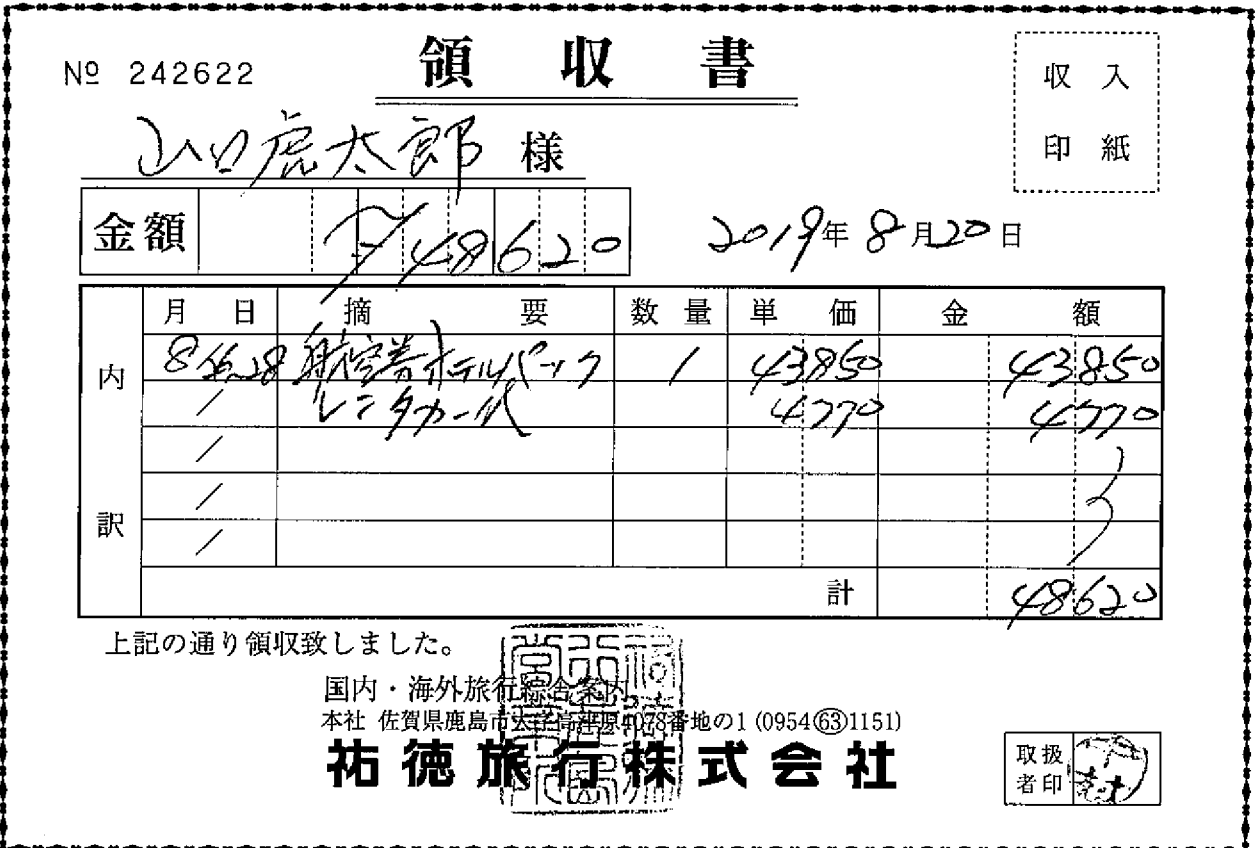 № 242622
領収書
収入
印紙
山口虎太郎 様
金額 ¥48620
2019年8月20日
内訳
月 日 摘 要 数 量 単 価 金 額
8 26~28 航空券ホテルパック 1 43850 43850
/ レンタカー代 4770 4770
/
/
/
計 48620
上記の通り領収致しました。
国内・海外旅行綜合案内
本社 佐賀県鹿島市大字高津原4078番地の1 (0954㊿1151)
祐徳旅行株式会社
取扱
者印